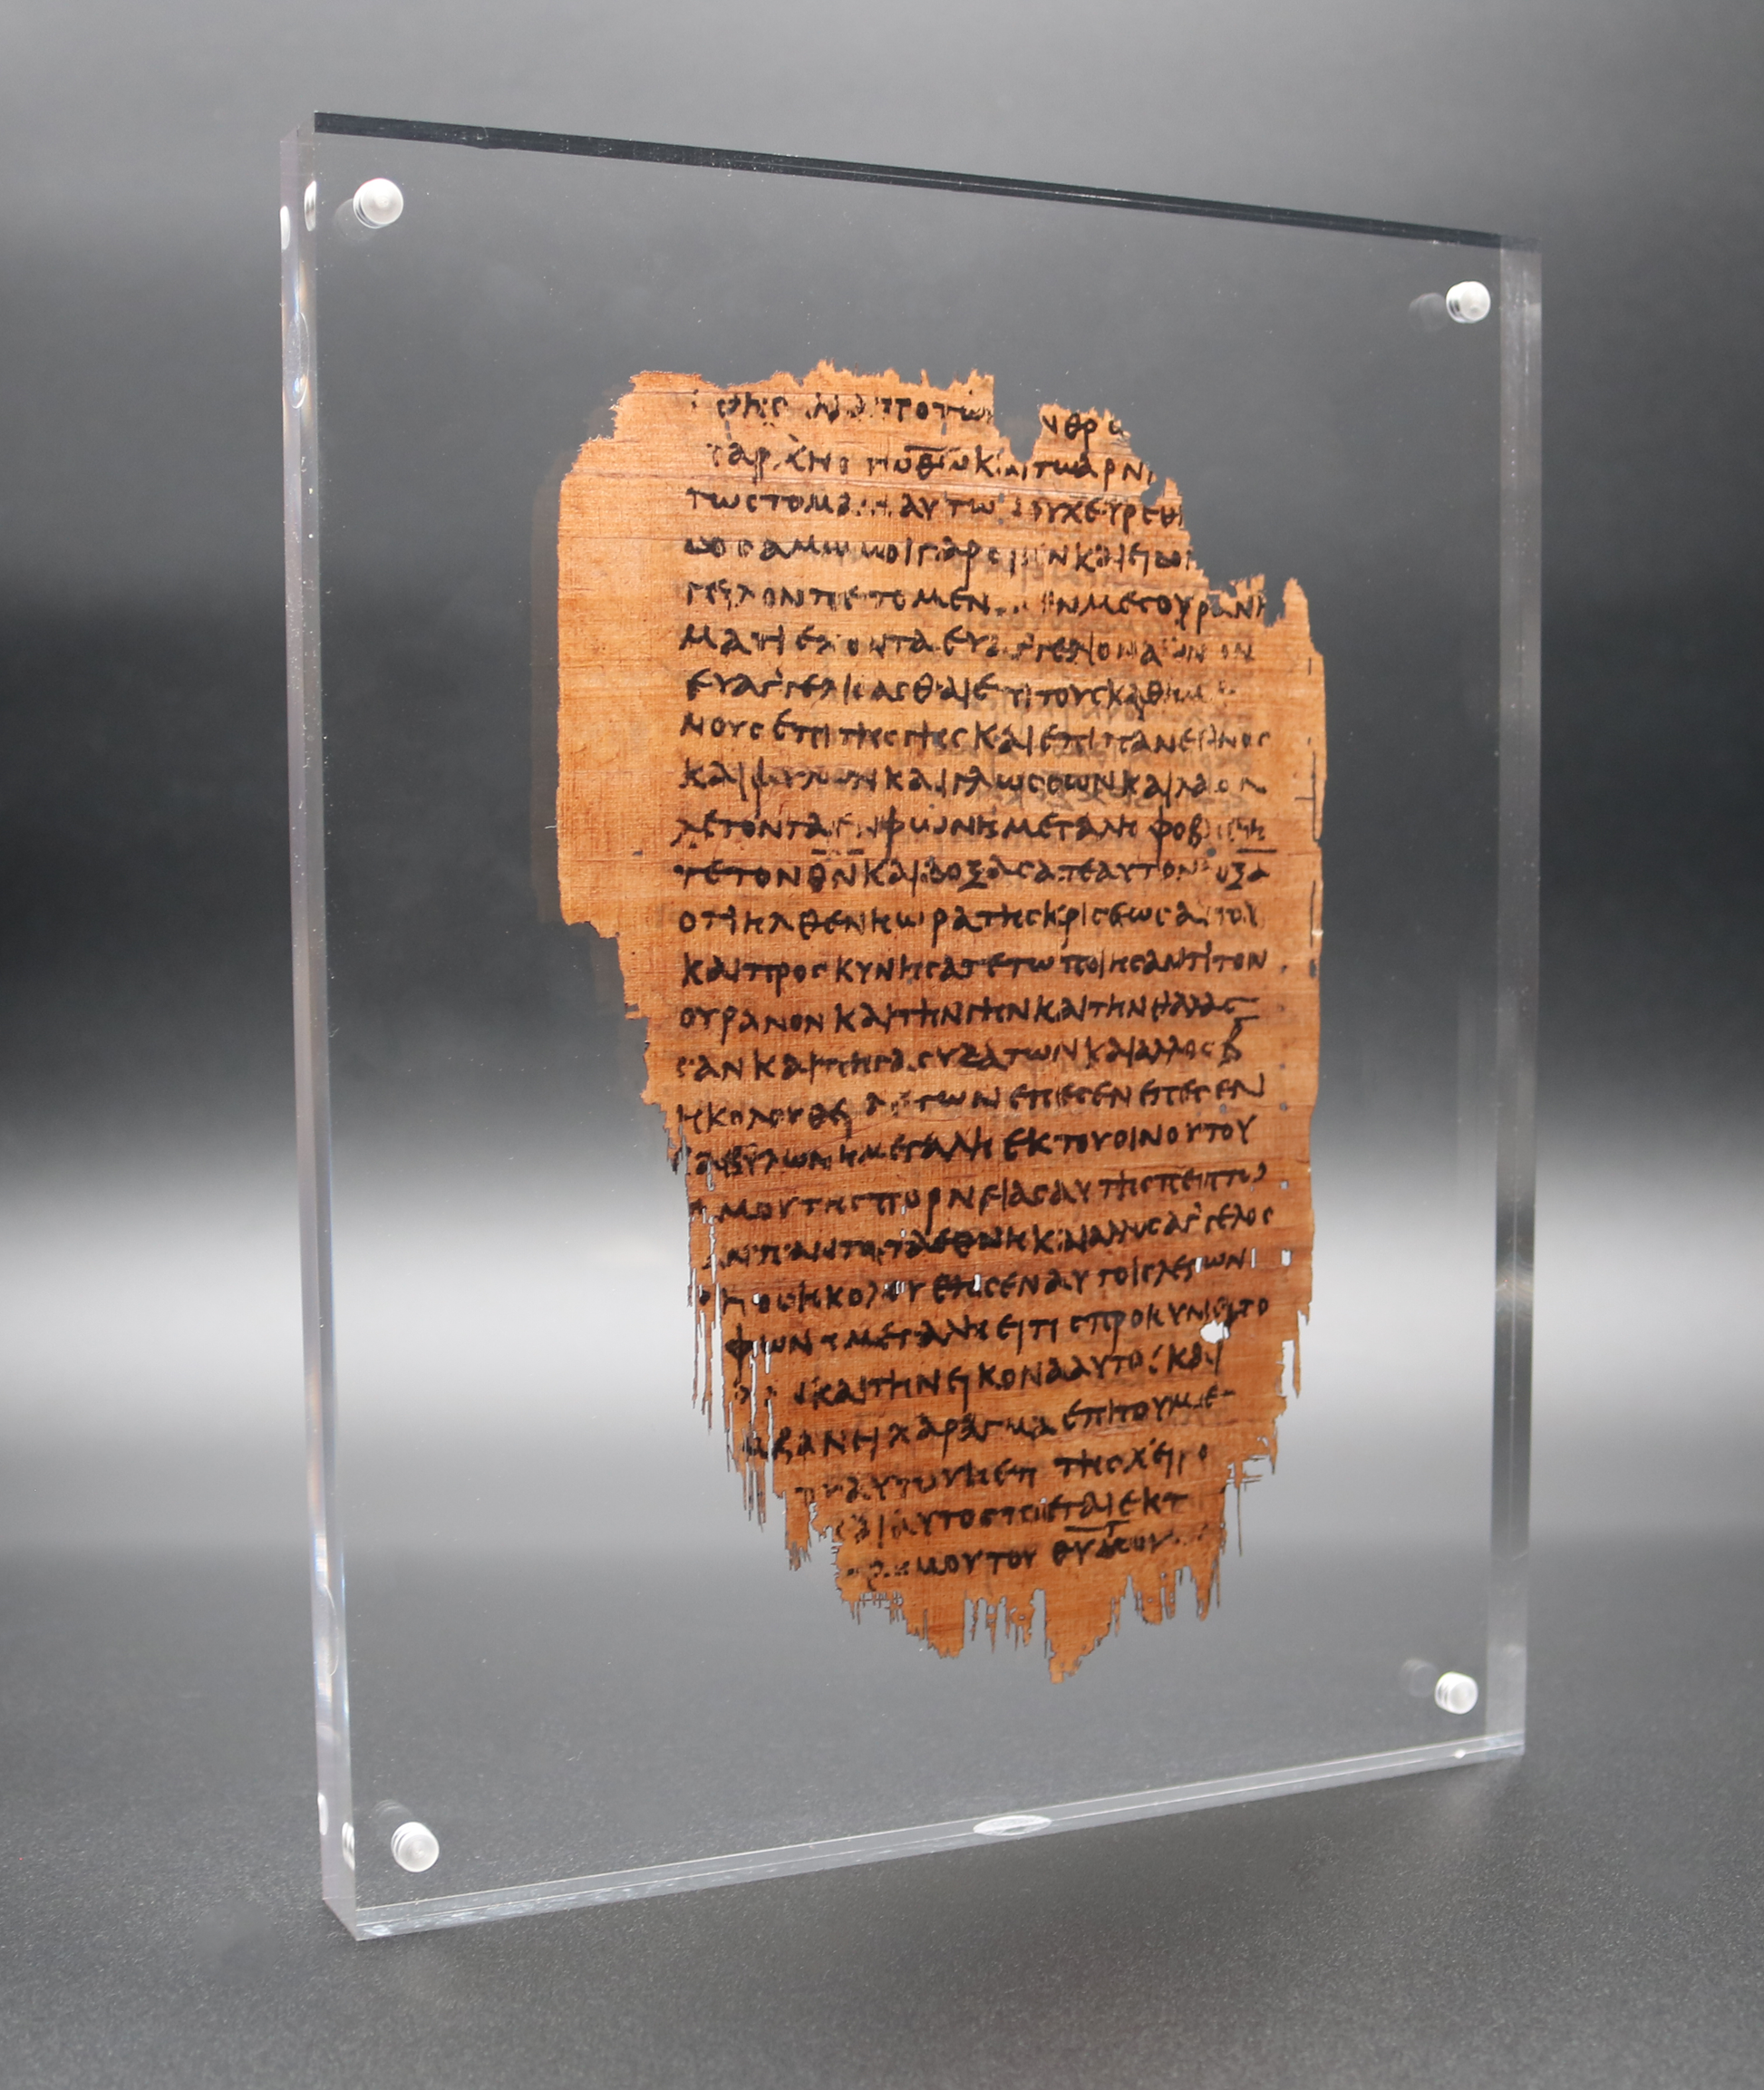 ΑΠΟ ΤΩΝ
ΤΩ Θ̅Ω̅ ΚΑΙ ΤΩ ΑΡΝΙ
ΤΩ ΣΤΟΜΑ ΑΥΤΩ ΟΥΧ ΕΥΡΕΘ
ΑΜΩΜΟΙ ΓΑΡ ΕΙΣΙΝ ΚΑΙ ΕΙΔΟΝ
ΓΕΛΟΝ ΠΕΤΟΜΕΝ ΕΝ ΜΕΣΟΥΡΑΝΗ
ΜΑΤΙ ΕΧΟΝΤΑ ΕΥΑΓΓΕΛΙΟΝ ΑΙΩΝΙΟΝ
ΕΥΑΓΓΕΛΙΣΑΣΘΑΙ ΕΠΙ ΤΟΥΣ ΚΑΘΗΜΕ
ΝΟΥΣ ΕΠΙ ΤΗΣ ΓΗΣ ΚΑΙ ΕΠΙ ΠΑΝ ΕΘΝΟΣ
ΚΑΙ ΦΥΛΩΝ ΚΑΙ ΓΛΩΣΣΩΝ ΚΑΙ ΛΑΟΝ
ΛΕΓΟΝΤΑ ΕΝ ΦΩΝΗ ΜΕΓΑΛΗ ΦΟΒΗΘΗ
ΤΕ ΤΟΝ Θ̅Ν̅ ΚΑΙ ΔΟΞΑΣΑΤΕ ΑΥΤΟΝ ΔΟΞΑ
ΟΤΙ ΗΛΘΕΝ Η ΩΡΑ ΤΗΣ ΚΡΙΣΕΩΣ ΑΥΤΟΥ
ΚΑΙ ΠΡΟΣΚΥΝΗΣΑΤΕ ΤΩ ΠΟΙΗΣΑΝΤΙ ΤΟΝ
ΟΥΡΑΝΟΝ ΚΑΙ ΤΗΝ ΓΗΝ ΚΑΙ ΤΗΝ ΘΑΛΑΣ
ΣΑΝ ΚΑΙ ΠΗΓΑΣ ΥΔΑΤΩΝ ΚΑΙ ΑΛΛΟΣ Β̅
ΗΚΟΛΟΥΘΕΙ ΛΕΓΩΝ ΕΠΕΣΕΝ ΕΠΕΣΕΝ
ΒΑΒΥΛΩΝ Η ΜΕΓΑΛΗ ΕΚ ΤΟΥ ΟΙΝΟΥ ΤΟΥ
ΜΟΥ ΤΗΣ ΠΟΡΝΕΙΑΣ ΑΥΤΗΣ ΠΕΠΤΩ
ΑΝ ΠΑΝΤΑ ΤΑ ΕΘΝΗ ΚΑΙ ΑΛΛΟΣ ΑΓΓΕΛΟΣ
ΗΚΟΛΟΥΘΗΣΕΝ ΑΥΤΟΙΣ ΛΕΓΩΝ
ΦΩΝΗ ΜΕΓΑΛΗ ΕΙ ΤΙΣ ΠΡΟΚΥΝΕΙ ΤΟ
ΚΑΙ ΤΗΝ ΕΙΚΟΝΑ ΑΥΤΟΥ ΚΑΙ
ΒΑΝΕΙ ΧΑΡΑΓΜΑ ΕΠΙ ΤΟΥ ΜΕ
ΑΥΤΟΥ Η ΕΠΙ ΤΗΣ ΧΕΙΡΟ
ΚΑΙ ΑΥΤΟΣ ΠΙΕΤΑΙ ΕΚ Τ
ΜΟΥ ΤΟΥ Θ̅Υ̅